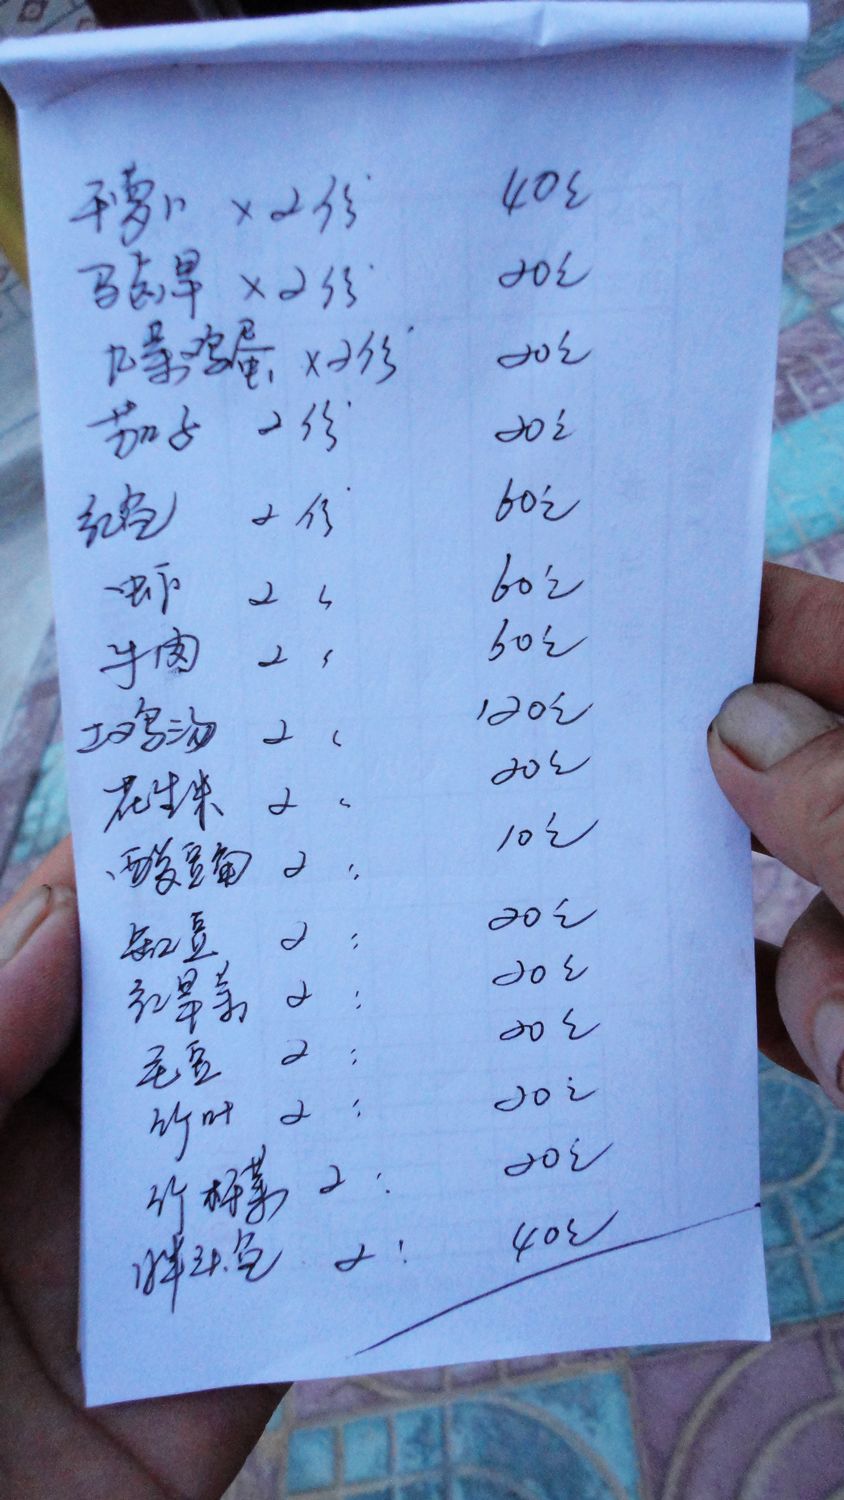 干萝卜 ×2份 40元
马齿旱 ×2份 20元
九菜鸡蛋 ×2份 20元
茄子 2份 20元
红鱼 2份 60元
虾 2 〃 60元
牛肉 2 〃 60元
土鸡汤 2 〃 120元
花生米 2 〃 20元
酸豆角 2 〃 10元
豆 2 〃 20元
红旱菜 2 〃 20元
毛豆 2 〃 20元
竹叶 2 〃 20元
竹杆菜 2 〃 20元
胖头鱼 2 〃 40元